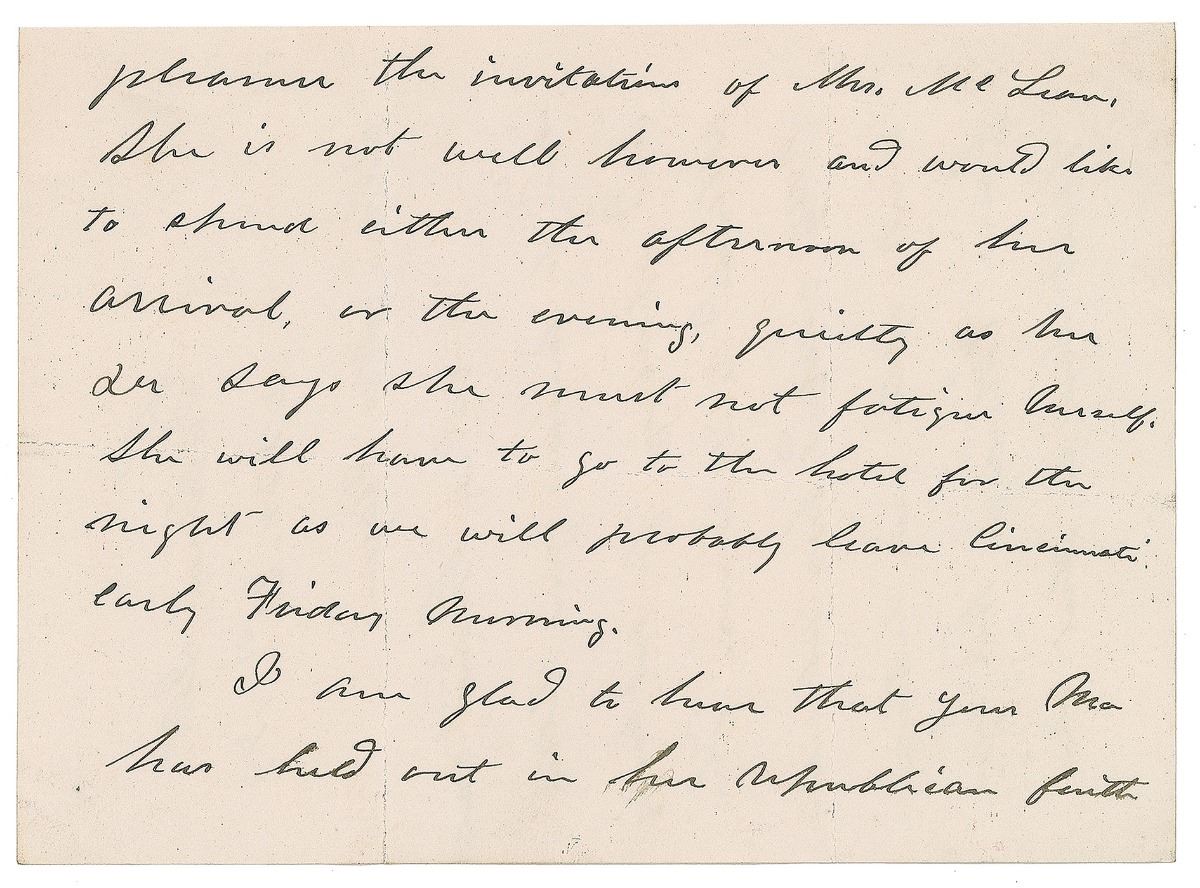 pleasure the invitation of Mrs. McLean.
She is not well however and would like
to spend either the afternoon of her
arrival, or the evening, quietly as her
Dr says she must not fatigue herself.
She will have to go to the hotel for the
night as we will probably leave Cincinnati
early Friday morning.
I am glad to hear that your Ma
has held out in her republican faith